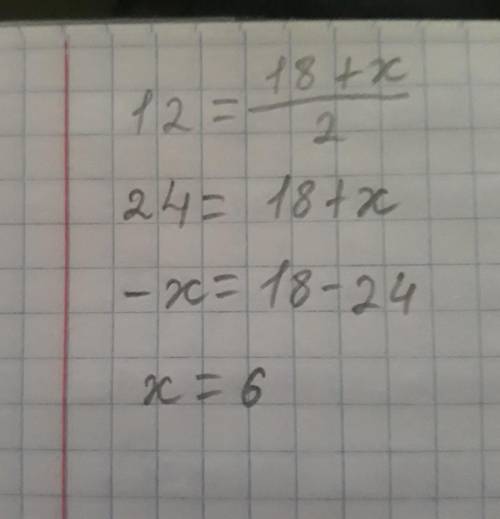 12 = (18 + x) / 2
24 = 18 + x
- x = 18 - 24
x = 6